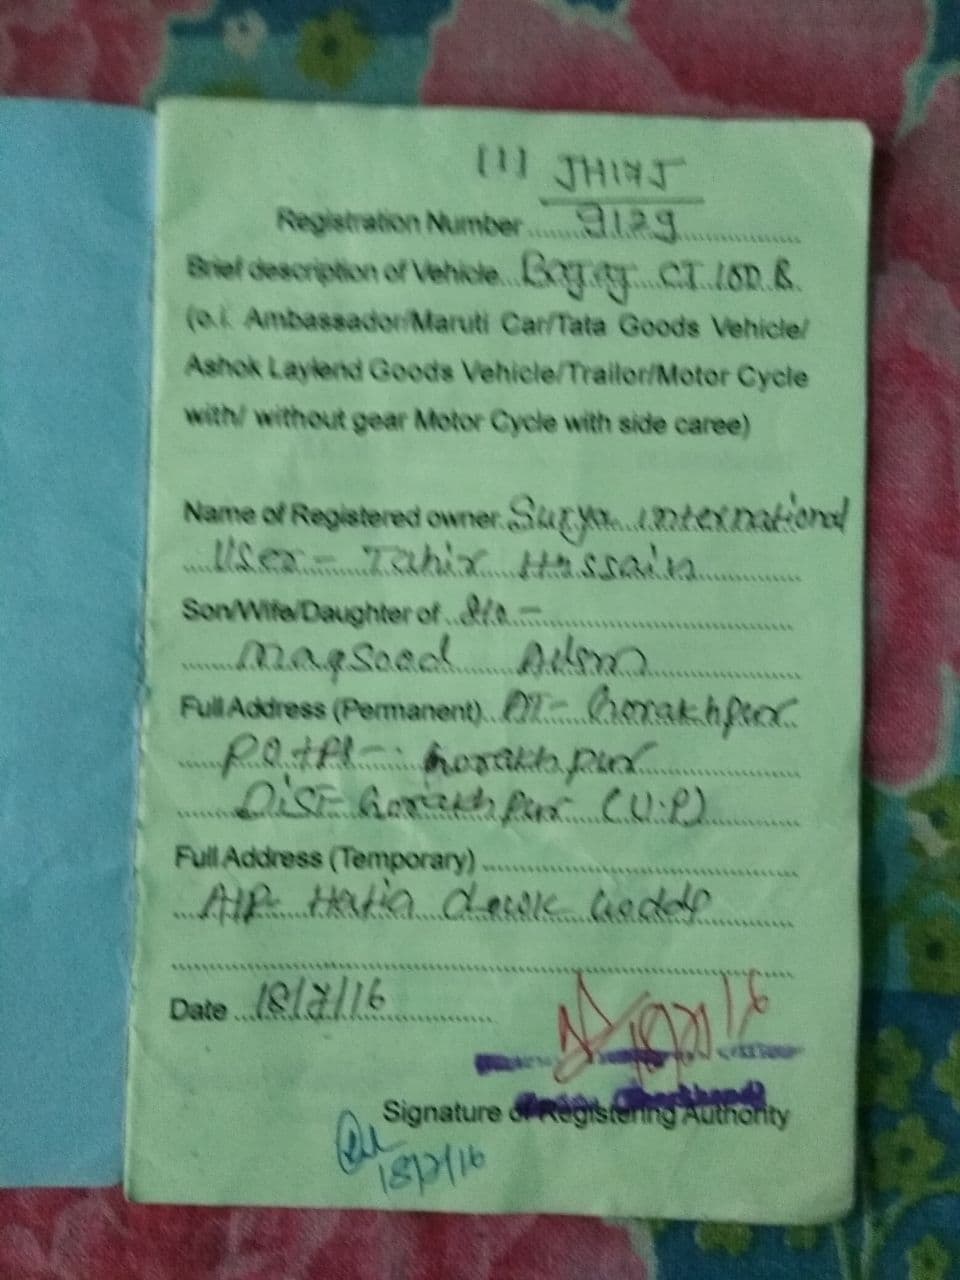 (1) JH17J
Registration Number 9129
Brief description of Vehicle Bajaj CT 100 B
(e.i. Ambassador/Maruti Car/Tata Goods Vehicle/
Ashok Laylend Goods Vehicle/Trailor/Motor Cycle
with/ without gear Motor Cycle with side caree)
Name of Registered owner Surya international
User - Tahir Hussain
Son/Wife/Daughter of S/o -
Maqsood Alam
Full Address (Permanent) AT- Gorakhpur
PO+PS- Gorakhpur
Dist- Gorakhpur (U.P)
Full Address (Temporary)
A/P- Hatia chowk Godda
Date 18/7/16
18/7/16
Signature of Registering Authority
18/7/16